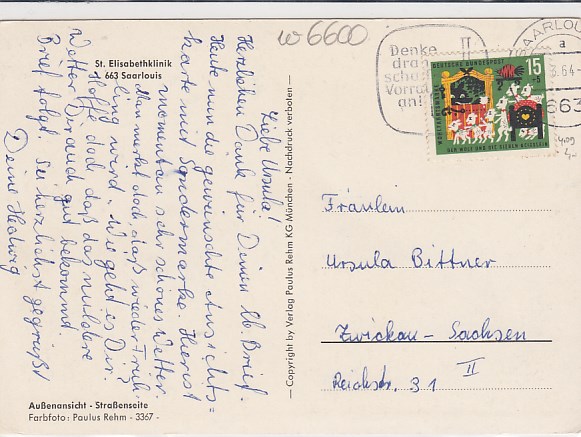 w 6600
St. Elisabethklinik
663 Saarlouis
Liebe Ursula!
Herzlichen Dank für Deinen lb. Brief.
Heute nun die gewünschte Ansichts=
karte mit Sondermarke. Hier ist
momentan sehr schönes Wetter.
Man merkt doch, daß wieder Früh=
ling wird. Wie geht es Dir?
Hoffe doch daß das mildere
Wetter Dir auch gut bekommt.
Brief folgt. Sei herzlichst gegrüßt
Deine Hedwig
Außenansicht - Straßenseite
Farbfoto: Paulus Rehm - 3367 -
— Copyright by Verlag Paulus Rehm KG München - Nachdruck verboten —
Denke
dran
Vorrat
SAARLOUIS
a
64-
663
DEUTSCHE BUNDESPOST
15
+5
WOHLFAHRTSMARKE
DER WOLF UND DIE SIEBEN GEISSLEIN
Fräulein
Ursula Bittner
Zwickau - Sachsen
Reichstr. 31 II